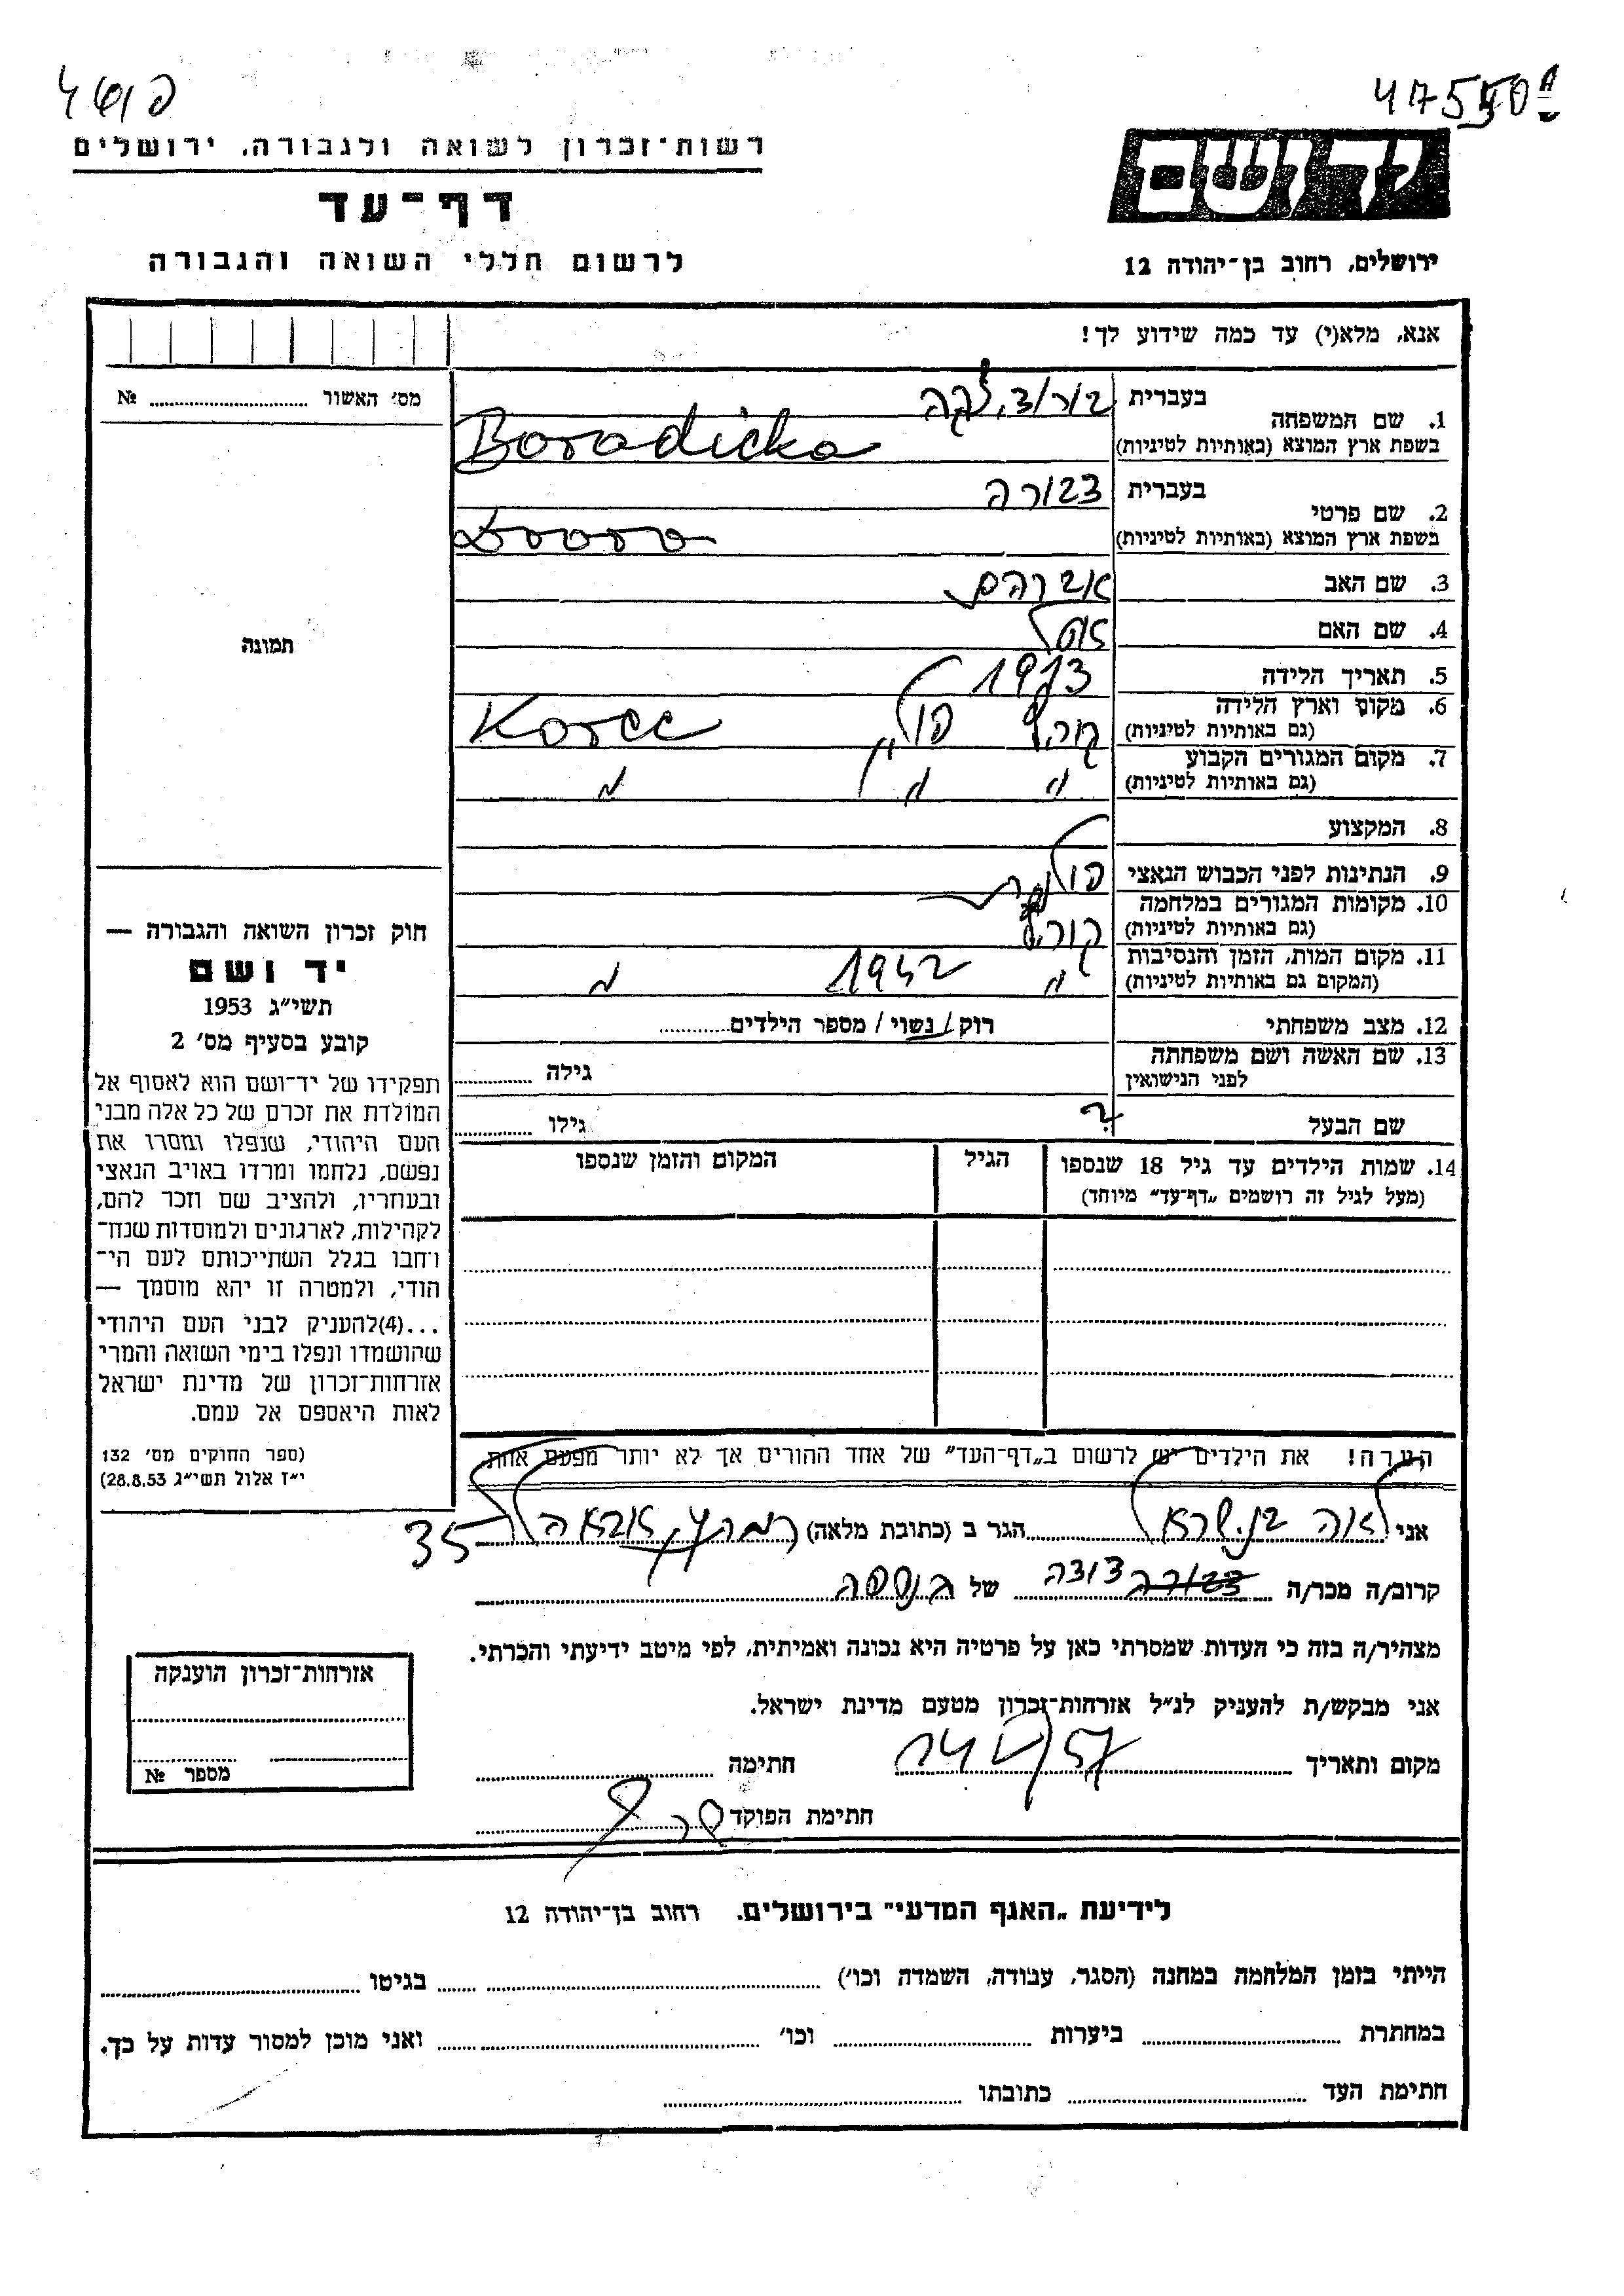 47550
רשות־זכרון לשואה ולגבורה, ירושלים
ידושם
דף־עד
ירושלים, רחוב בן־יהודה 12
לרשום חללי השואה והגבורה
אנא, מלא(י) עד כמה שידוע לך!
מס׳ האשור ........ №
תמונה
1. שם המשפחה
בעברית
בשפת ארץ המוצא (באותיות לטיניות) Boradicka
2. שם פרטי
בעברית דבורה
בשפת ארץ המוצא (באותיות לטיניות)
3. שם האב אברהם
4. שם האם
5. תאריך הלידה 1913
6. מקום וארץ הלידה
(גם באותיות לטיניות) קורץ פולין Korec
7. מקום המגורים הקבוע
(גם באותיות לטיניות) " " "
8. המקצוע
9. הנתינות לפני הכבוש הנאצי פולנית
10. מקומות המגורים במלחמה
(גם באותיות לטיניות) קורץ
11. מקום המות, הזמן והנסיבות
(המקום גם באותיות לטיניות) " 1942 "
12. מצב משפחתי רוק / נשוי / מספר הילדים........
13. שם האשה ושם משפחתה
לפני הנישואין גילה ........
שם הבעל ? גילו ........
14. שמות הילדים עד גיל 18 שנספו
(מעל לגיל זה רושמים „דף־עד” מיוחד)
הגיל
המקום והזמן שנספו
הערה! את הילדים יש לרשום ב„דף־העד” של אחד ההורים אך לא יותר מפעם אחת
חוק זכרון השואה והגבורה —
יד ושם
תשי״ג 1953
קובע בסעיף מס׳ 2
תפקידו של יד־ושם הוא לאסוף אל
המולדת את זכרם של כל אלה מבני
העם היהודי, שנפלו ומסרו את
נפשם, נלחמו ומרדו באויב הנאצי
ובעוזריו, ולהציב שם וזכר להם,
לקהילות, לארגונים ולמוסדות שנח־
רבו בגלל השתייכותם לעם הי־
הודי, ולמטרה זו יהא מוסמך —
...(4)להעניק לבני העם היהודי
שהושמדו ונפלו בימי השואה והמרי
אזרחות־זכרון של מדינת ישראל
לאות היאספם אל עמם.
(ספר החוקים מס׳ 132
י״ז אלול תשי״ג 28.8.53)
אני לאה הגר ב (כתובת מלאה) 35
קרוב/ה מכר/ה דודה של הנספה
מצהיר/ה בזה כי העדות שמסרתי כאן על פרטיה היא נכונה ואמיתית, לפי מיטב ידיעתי והכרתי.
אני מבקש/ת להעניק לנ״ל אזרחות־זכרון מטעם מדינת ישראל.
מקום ותאריך 14/V 57 חתימה
חתימת הפוקד
אזרחות־זכרון הוענקה
מספר №
לידיעת „האגף המדעי” בירושלים. רחוב בן־יהודה 12
הייתי בזמן המלחמה במחנה (הסגר, עבודה, השמדה וכו׳) ........ בגיטו ........
במחתרת ........ ביערות ........ וכו׳ ........ ואני מוכן למסור עדות על כך.
חתימת העד ........ כתובתו ........